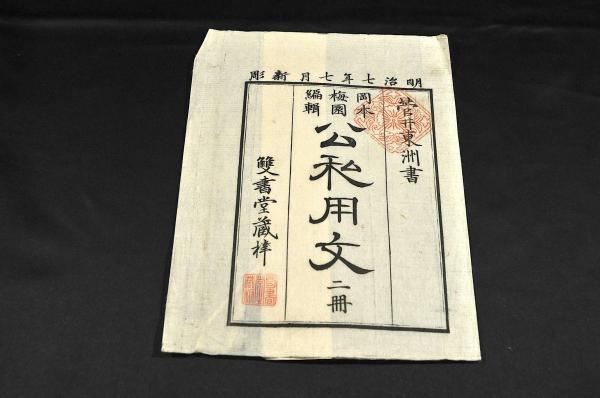 明治七年七月新彫
菅井東洲書
岡本
梅園
編輯
公私用文 二冊
雙書堂藏梓